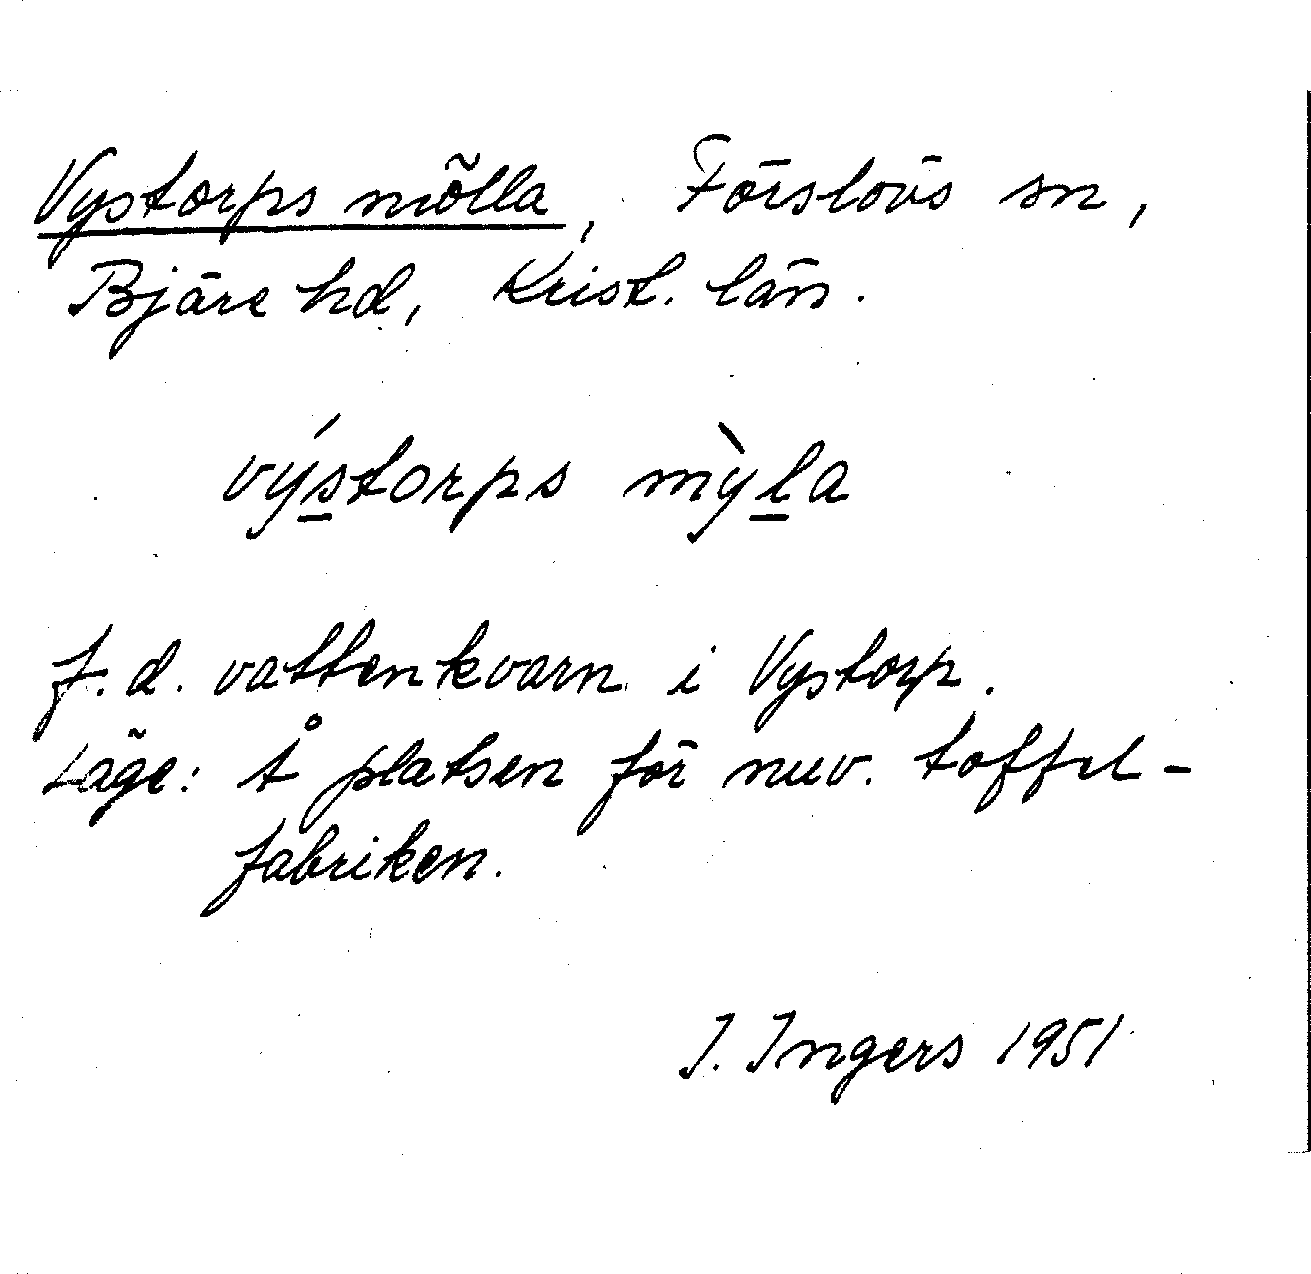 Vystorps mölla, Förslövs sn,
Bjäre hd, Krist. län.
výstorps mỳla
f.d. vattenkvarn i Vystorp.
Läge: Å platsen för nuv. toffel-
fabriken.
I. Ingers 1951